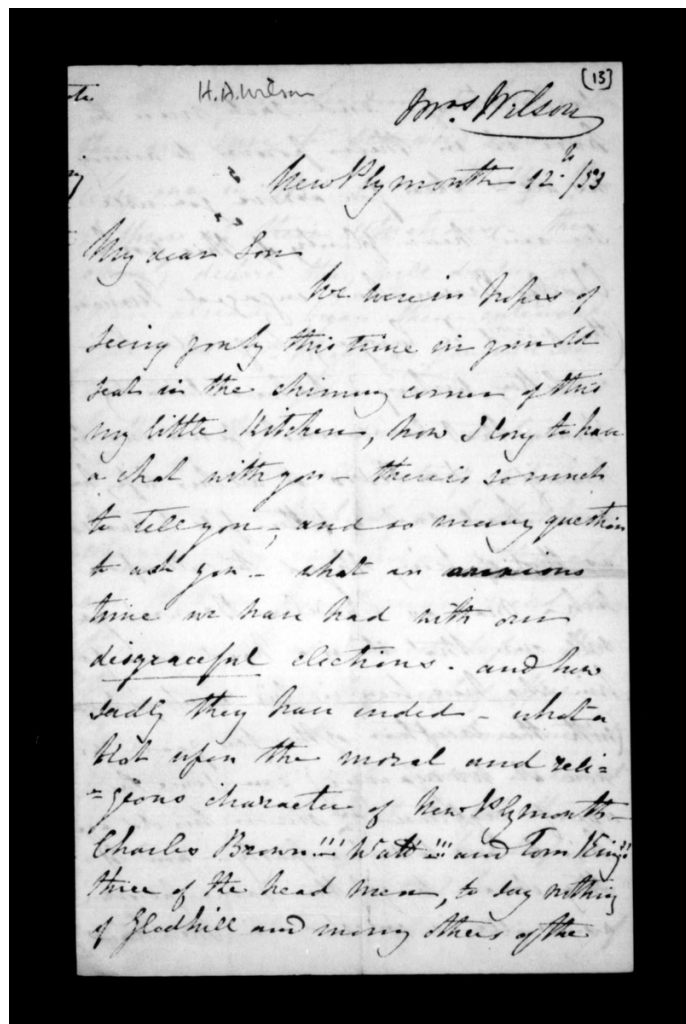 [13]
H.A. Wilson
Mrs. Wilson
New Plymouth 12 /53
My dear Son
We were in hopes of
seeing you by this time in your old
seat in the chimney corner of this
my little Kitchen, how I long to have
a chat with you - there is so much
to tell you -, and so many question
to ask you - what an anxious
time we have had with our
disgraceful elections. and how
sadly they have ended - what a
blot upon the moral and reli=
=geous character of New Plymouth -
Charles Brown!!! Watt!!! and Tom King!!
three of the head men, to say nothing
of Gledhill and many others of the